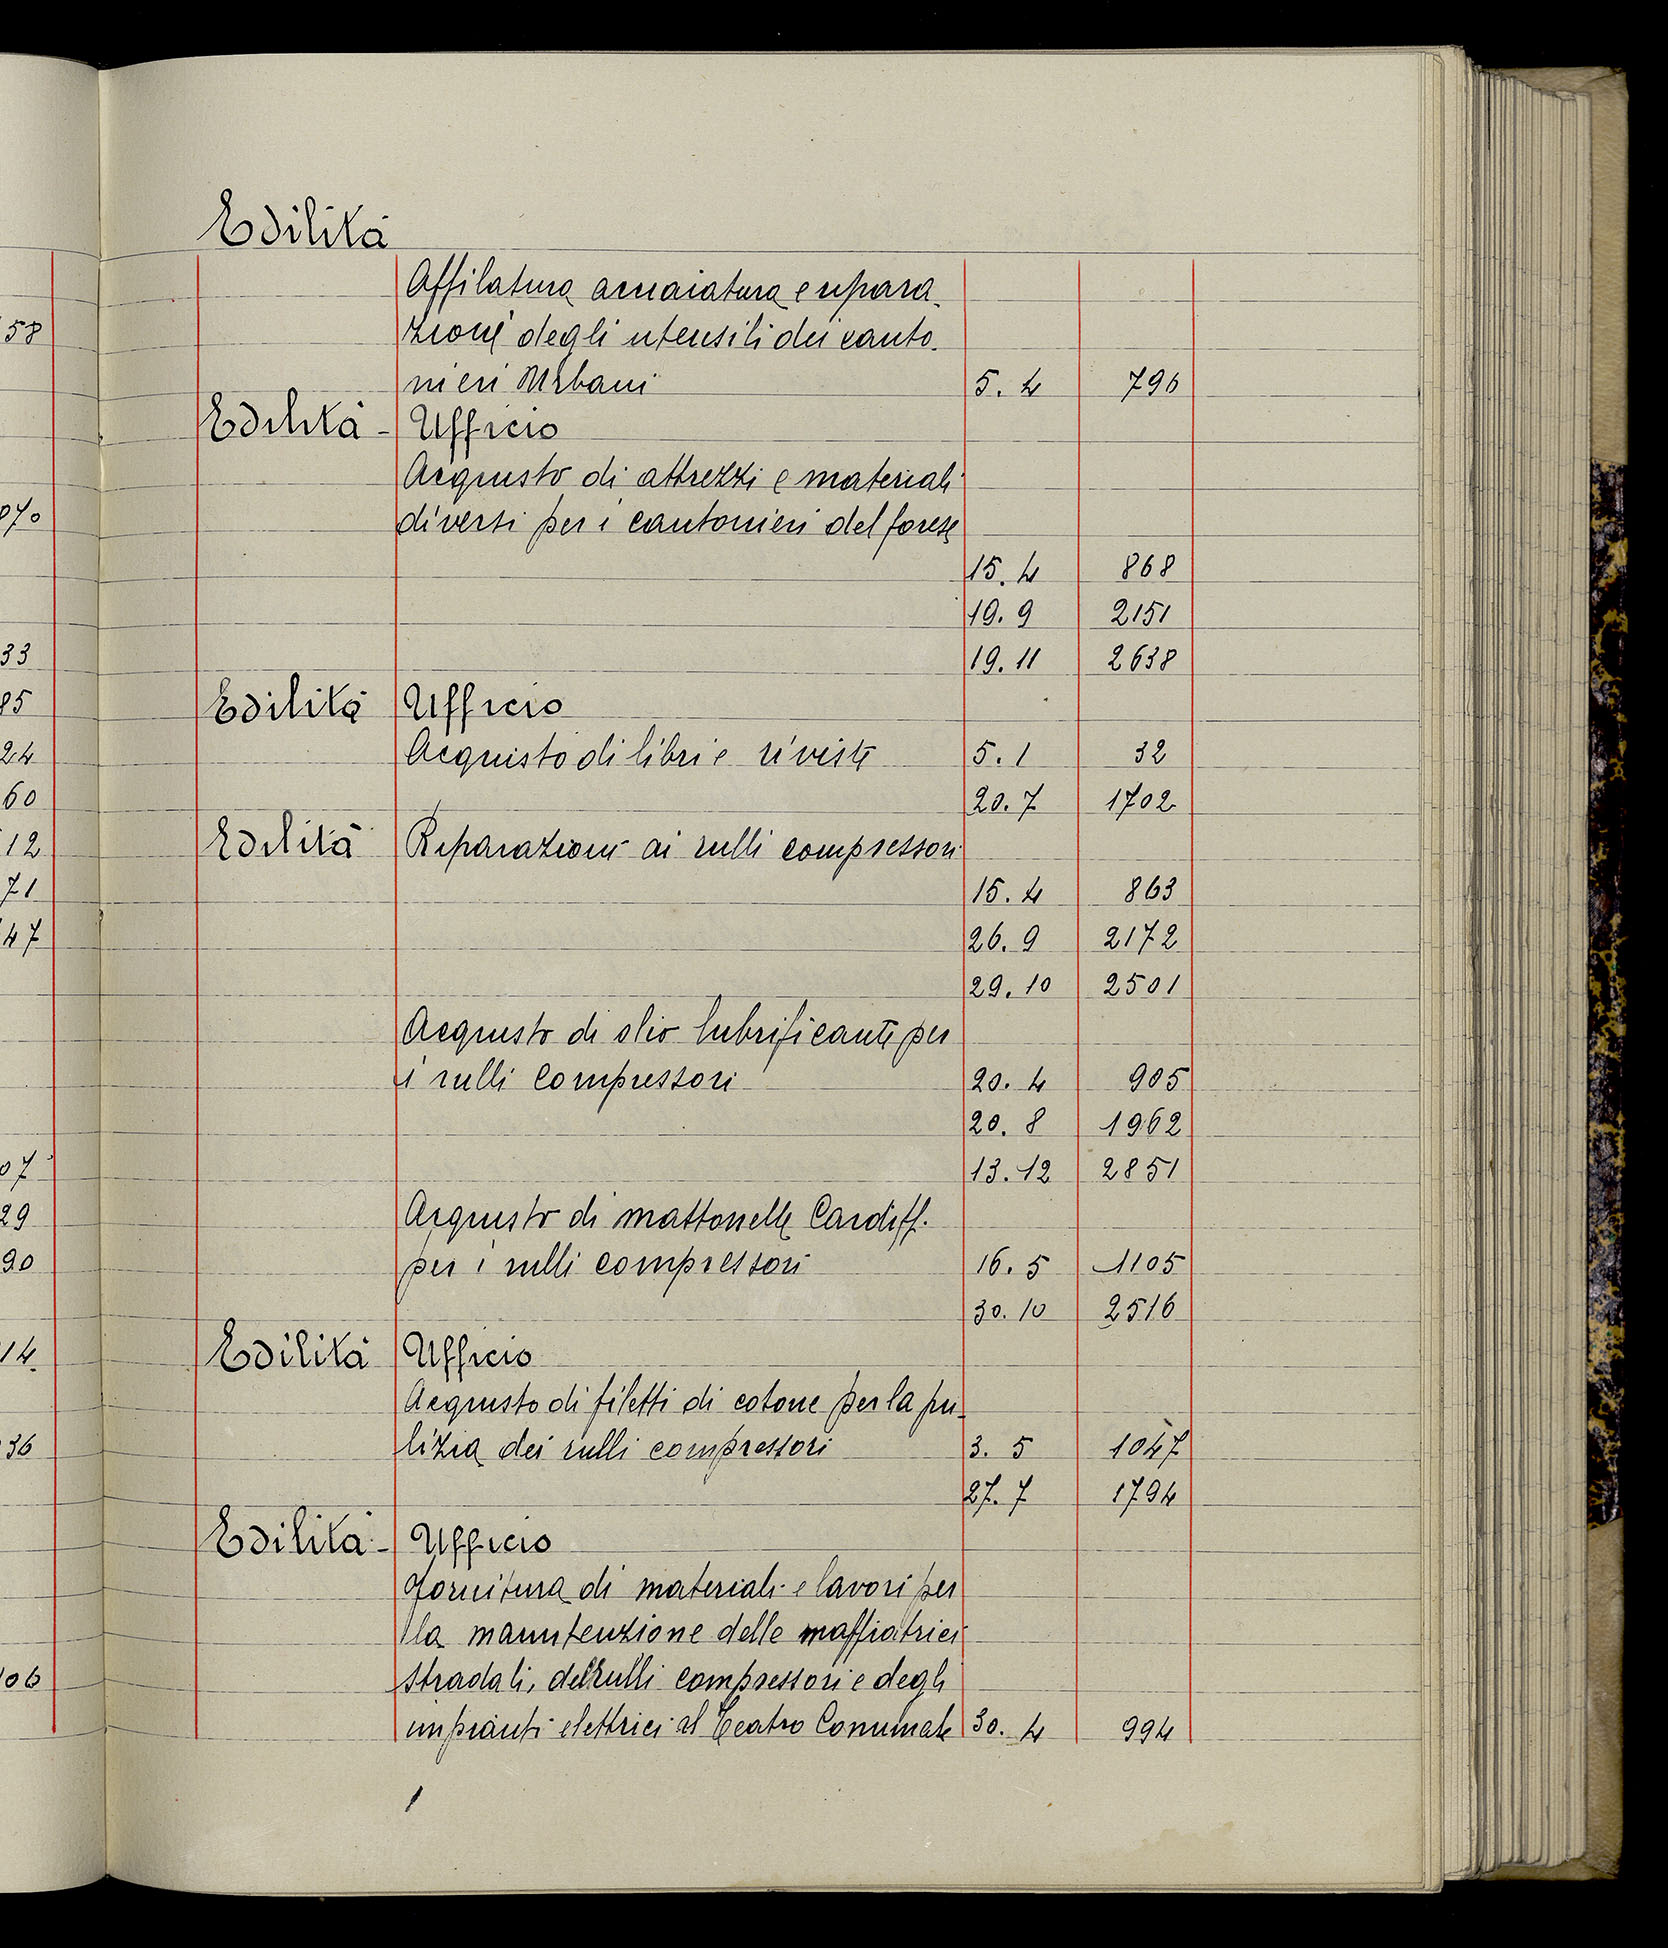 Edilità
Affilatura acciaiatura e ripara-
zioni degli utensili dei canto-
nieri Urbani 5. 4 796
Edilità - Ufficio
Acquisto di attrezzi e materiali
diversi per i cantonieri del forese
15. 4 868
19. 9 2151
19. 11 2638
Edilità Ufficio
Acquisto di libri e riviste 5. 1 32
20. 7 1702
Edilità Riparazioni ai rulli compressori
15. 4 863
26. 9 2172
29. 10 2501
Acquisto di olio lubrificante per
i rulli compressori 20. 4 905
20. 8 1962
13. 12 2851
Acquisto di mattonelle Cardiff.
per i rulli compressori 16. 5 1105
30. 10 2516
Edilità Ufficio
Acquisto di filetti di cotone per la pu-
lizia dei rulli compressori 3. 5 1047
27. 7 1794
Edilità - Ufficio
Fornitura di materiali e lavori per
la manutenzione delle innaffiatrici
stradali, dei rulli compressori e degli
impianti elettrici al Teatro Comunale 30. 4 994
58
070
33
85
24
60
12
71
47
07
29
90
14.
36
106